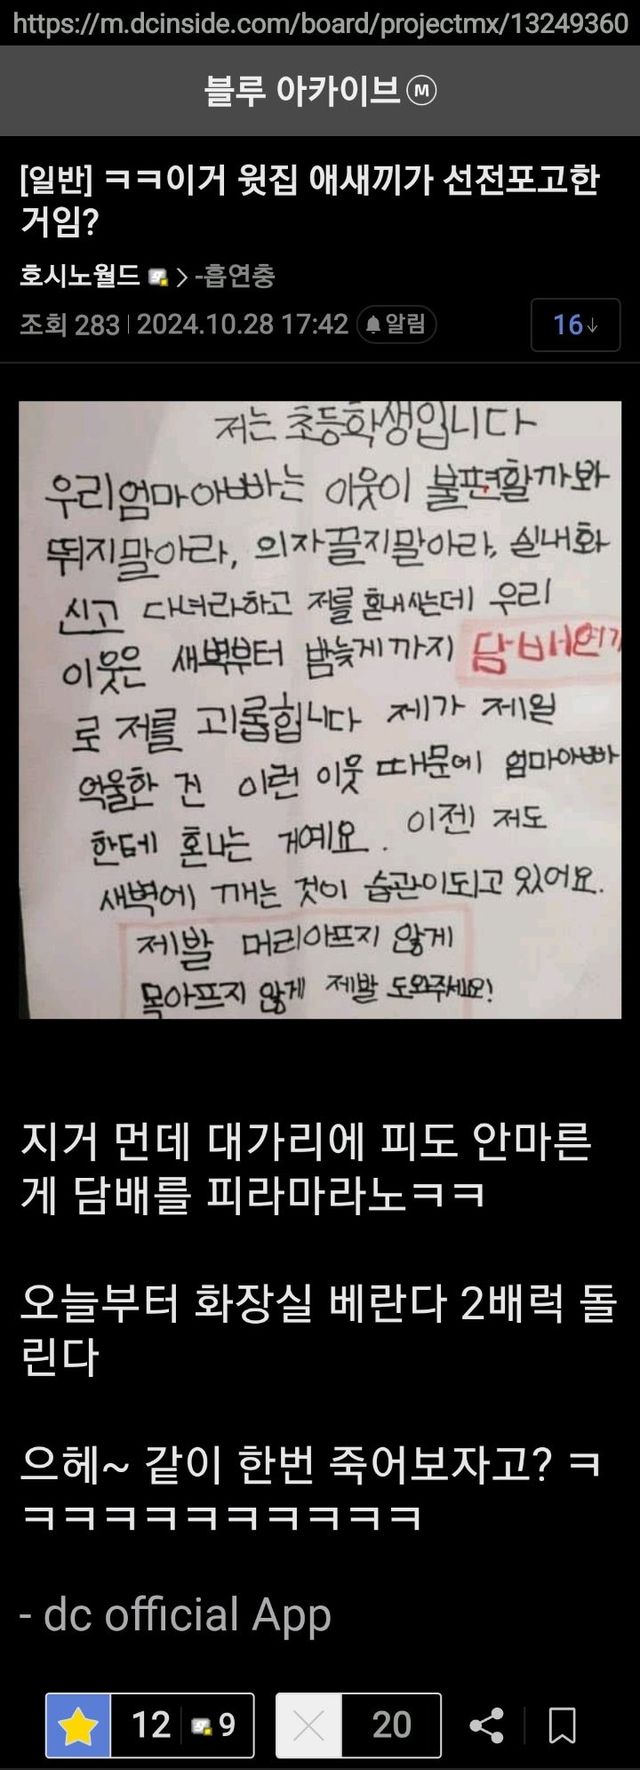 https://m.dcinside.com/board/projectmx/13249360
블루 아카이브 Ⓜ
[일반] ㅋㅋ이거 윗집 애새끼가 선전포고한
거임?
호시노월드 > -흡연충
조회 283 | 2024.10.28 17:42 알림
16↓
저는 초등학생입니다
우리엄마아빠는 이웃이 불편할까봐
뛰지말아라, 의자끌지말아라, 실내화
신고 다녀라하고 저를 혼내시는데 우리
이웃은 새벽부터 밤늦게까지 담배연기
로 저를 괴롭힙니다 제가 제일
억울한 건 이런 이웃 때문에 엄마아빠
한테 혼나는 거예요. 이젠 저도
새벽에 깨는 것이 습관이되고 있어요.
제발 머리아프지 않게
목아프지 않게 제발 도와주세요!
지거 먼데 대가리에 피도 안마른
게 담배를 피라마라노ㅋㅋ
오늘부터 화장실 베란다 2배럭 돌
린다
으헤~ 같이 한번 죽어보자고? ㅋ
ㅋㅋㅋㅋㅋㅋㅋㅋㅋㅋ
- dc official App
12 9 20